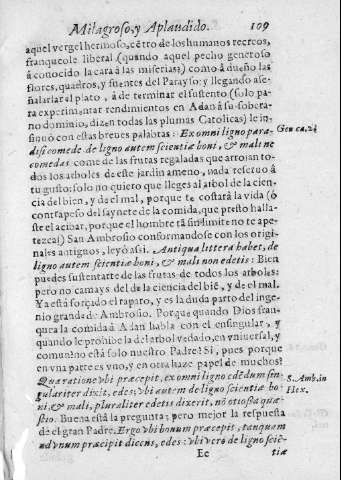 Milagroso, y Aplaudido. 109
aquel vergel hermoso, cẽtro de los humanos recreos,
franqueole liberal (quando aquel pecho generoso
á conocido la cara á las miserias) como á dueño las
flores, quadros, y fuentes del Parayso: y llegando ase-
ñalar le al plato, á de terminar el sustento (solo pa-
ra experimentar rendimientos en Adan á su sobera-
no dominio, dizen todas las plumas Catolicas) le in-
sinuò con estas breues palabras: Ex omni ligno para- Gen ca. 2.
disi comede de ligno autem scientiæ boni, & mali ne
comedas come de las frutas regaladas que arrojan to-
dos los arboles de este jardin ameno, nada reseruo á
tu gusto: solo no quiero que llegues al arbol de la cien-
cia del bien, y de el mal, porque te costará la vida (ó
contrapeso del saynete de la comida, que presto halla-
ste el acibar, porque el hombre tã sin limite no te ape-
tezca) San Ambrosio conformandose con los origi-
nales antiguos, leyò assi. Antiqua littera habet, de
ligno autem scientiæ boni, & mali non edetis: Bien
puedes sustentarte de las frutas de todos los arboles:
pero no camays del de la ciencia del biẽ, y de el mal.
Ya está forçado el reparo, y es la duda parto del inge-
nio grande de Ambrosio. Porque quando Dios fran-
quea la comida á Adan habla con el en singular, y
quando le prohibe la del arbol vedado, en vniuersal, y
comun no está solo nuestro Padre? Si, pues porque
en vna parte es vno, y en otra haze papel de muchos?
Qua ratione vbi præcepit, ex omni ligno edẽdum sin- S. Amb. in
gulariter dixit, edes; vbi autem de ligno scientiæ bo- Hex.
ni, & mali, pluraliter edetis dixerit, nõ otiosa quæ-
stio. Buena está la pregunta; pero mejor la respuesta
de el gran Padre. Ergo vbi bonum præcepit, tanquam
ad vnum præcipit dicens, edes: vbi verò de ligno sciẽ-
Ee tiæ